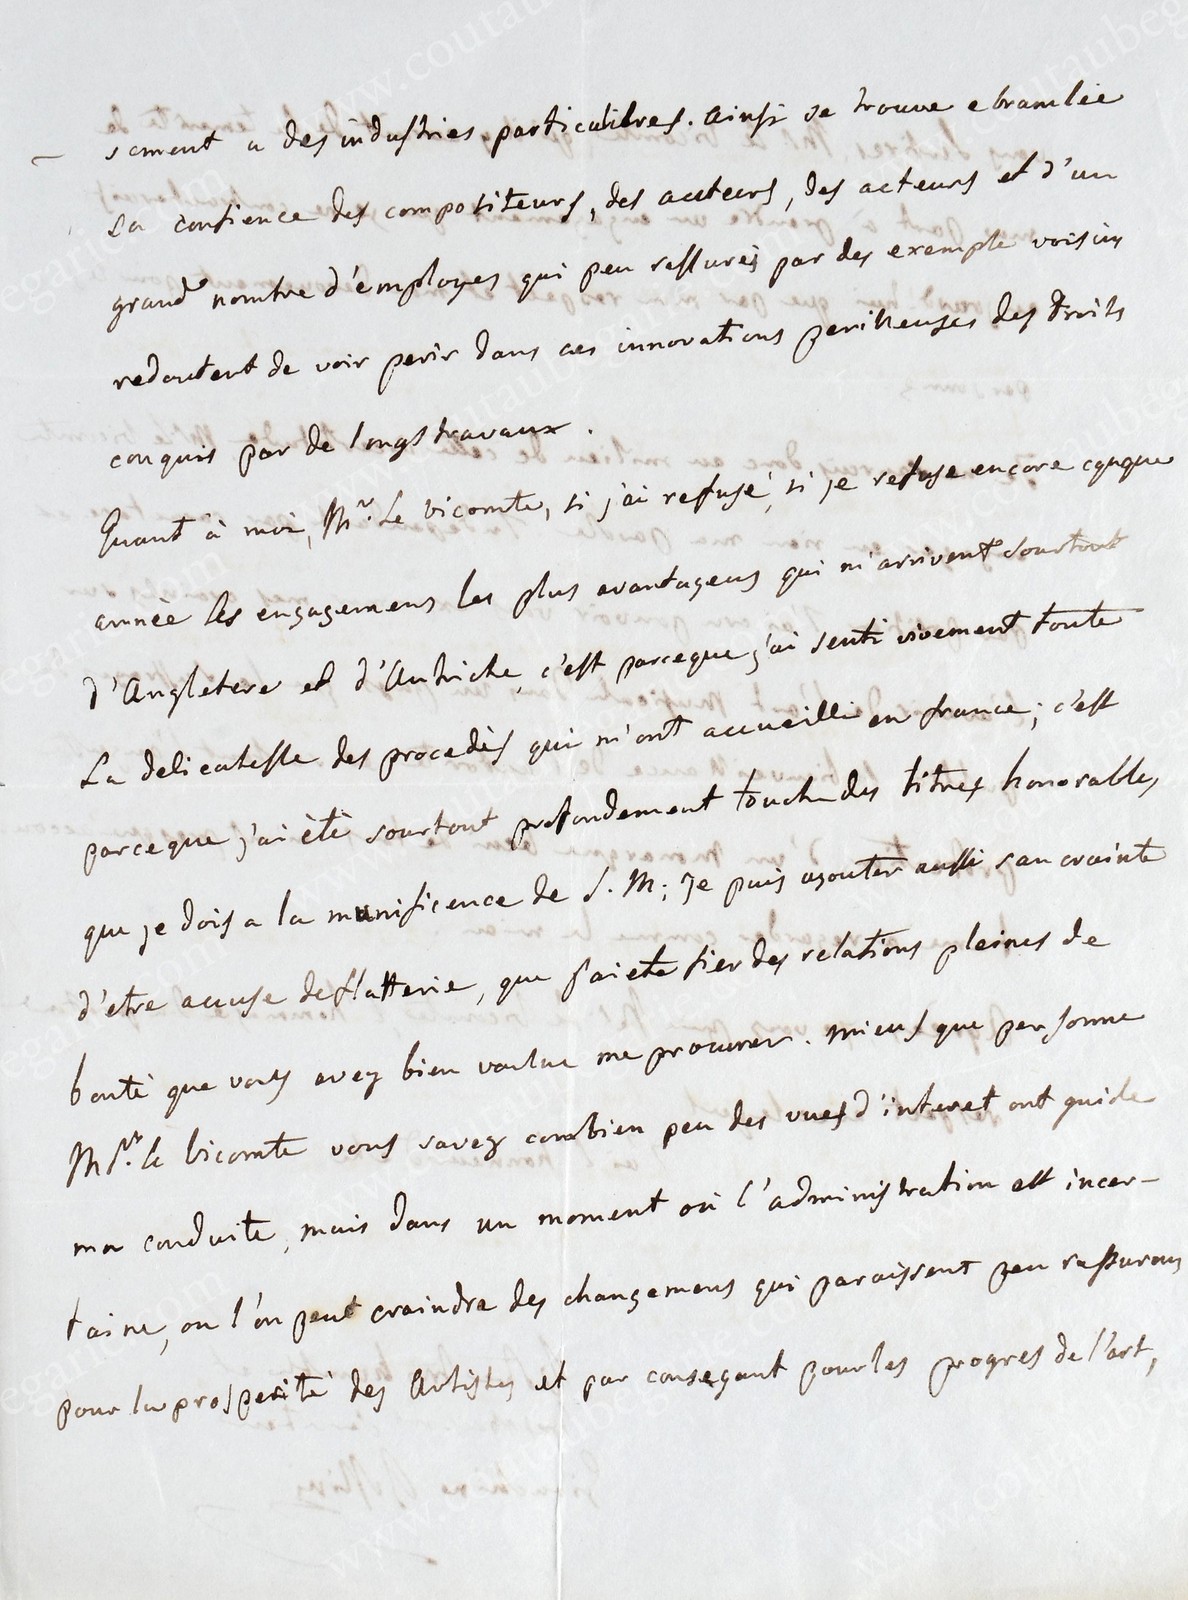 sement a des industries particulieres. Ainsi se trouve ebranlée
La confience des compositeurs, des auteurs, des acteurs et d'un
grand nombre d'émployes qui peu rassurés par des exemple voisins
redoutent de voir perir dans ces innovations perilleuses des droits
conquis par de longs travaux.
Quant à moi, Mr. Le vicomte, si j'ai refusé, si je refuse encore chaque
année les engagemens les plus avantageus qui m'arrivent sourtout
d'Angletere et d'Autriche, c'est parceque j'ai senti vivement toute
La delicatesse des procedès qui m'ont accueilli en france; c'est
parceque j'ai ètè sourtout profondement touché des titres honorables,
que je dois a la munificence de S. M; Je puis ajouter aussi san crainte
d'etre accuse de flatterie, que j'ai ete fier des relations pleines de
bontè que vous avez bien voulue me procurer. Mieus que personne
Msr. le vicomte vous savez combien peu des vues d'interet ont guide
ma conduite, mais dans un moment où l'administration est incer-
taine, ou l'on peut craindre des changemens qui paraissent peu rassurans
pour la prosperité des Artistes et par consequant pour les progres de l'art,
www.coutaubegarie.com